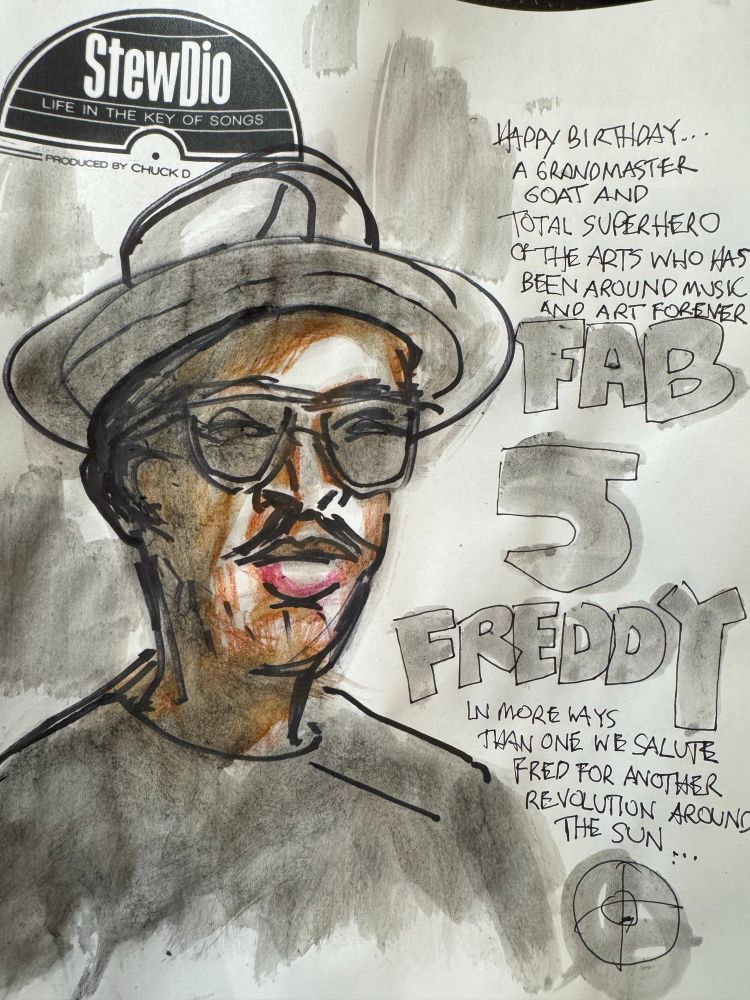 StewDio
LIFE IN THE KEY OF SONGS
PRODUCED BY CHUCK D
HAPPY BIRTHDAY...
A GRANDMASTER
GOAT AND
TOTAL SUPERHERO
OF THE ARTS WHO HAS
BEEN AROUND MUSIC
AND ART FOREVER
FAB
5
FREDDY
IN MORE WAYS
THAN ONE WE SALUTE
FRED FOR ANOTHER
REVOLUTION AROUND
THE SUN...